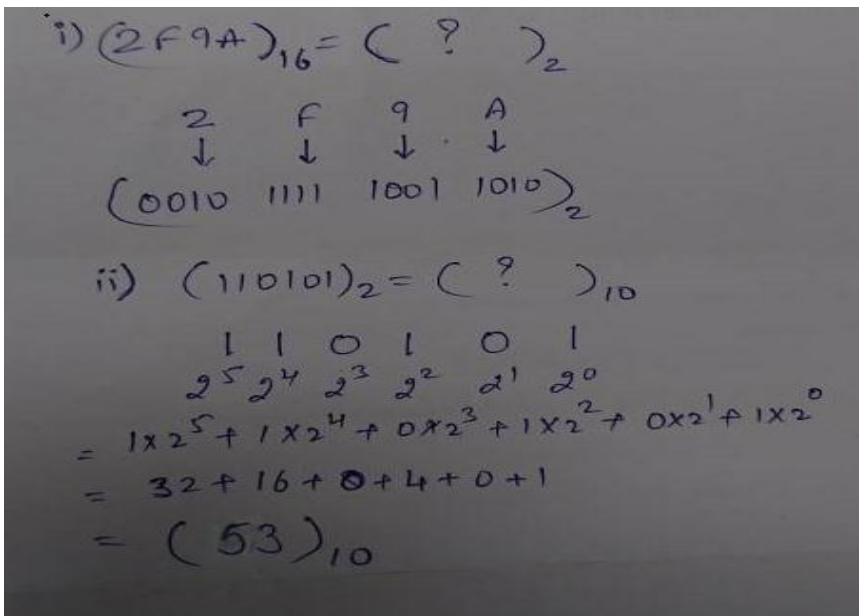 i) (2F9A)₁₆ = ( ? )₂
2 F 9 A
↓ ↓ ↓ ↓
(0010 1111 1001 1010)₂
ii) (110101)₂ = ( ? )₁₀
1 1 0 1 0 1
2⁵ 2⁴ 2³ 2² 2¹ 2⁰
= 1×2⁵ + 1×2⁴ + 0×2³ + 1×2² + 0×2¹ + 1×2⁰
= 32 + 16 + 0 + 4 + 0 + 1
= (53)₁₀